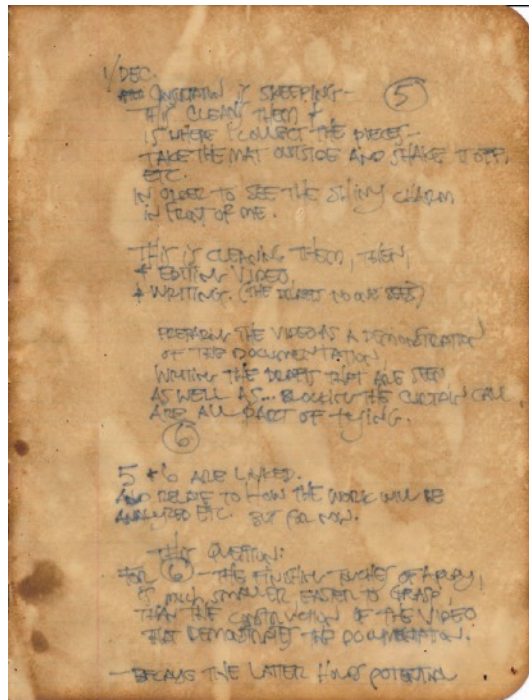 1/DEC.
IS SWEEPING— 5
THIS CLEANS THEM &
IS WHERE I COLLECT THE PIECES—
TAKE THE MAT OUTSIDE AND SHAKE IT OFF,
ETC.
IN ORDER TO SEE THE SHINY CHARM
IN FRONT OF ME.
THIS IS CLEANING THEM, THEN,
& EDITING VIDEO,
& WRITING. (THE DRAFTS NO ONE SEES)
PREPARING THE VIDEO AS A DEMONSTRATION
OF THE DOCUMENTATION,
WRITING THE DRAFTS THAT ARE SEEN
AS WELL AS... BLOCKING THE CURTAIN CALL,
ARE ALL PART OF TYING.
6
5 & 6 ARE LINKED.
AND RELATE TO HOW THE WORK WILL BE
ANALYZED ETC. BUT FOR NOW.
THIS QUESTION:
FOR 6 — THE FINISHING TOUCHES OF A PLAY,
IS MUCH SMALLER EASIER TO GRASP
THAN THE CONSTRUCTION OF THE VIDEO
THAT DEMONSTRATES THE DOCUMENTATION.
— BECAUSE THE LATTER HOLDS POTENTIAL